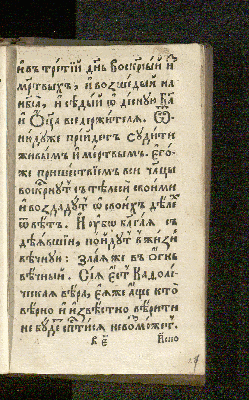 и въ третїй днь Воскрⷭ҇ый ѿ
мертвыхъ, и возшедый на
нб҃са, и сѣдый ѡ деснꙋю Бг҃а
и Ѻц҃а вседержителя. Ѿ
нюдꙋже прїидетъ сꙋдити
живымъ и мертвымъ. Егѡ
же пришествїемъ вси чл҃цы
воскрⷭ҇нꙋтъ с̾ тѣлеси своими
и воздадꙋтъ ѡ своихъ дѣлѣⷯ
ѿвѣтъ. И ꙋбѡ благая съ
дѣявшїи, пойдꙋтъ в̾ жизнь
вѣчнꙋю: Злая же въ Ѻгнь
вѣчный. Сїя єⷭ҇т Каѳолї
ческая вѣра, Єяже аще кто
вѣрно и извѣстно вѣрити
не бꙋдеⷮ, спⷭ҇тися невозможетъ.